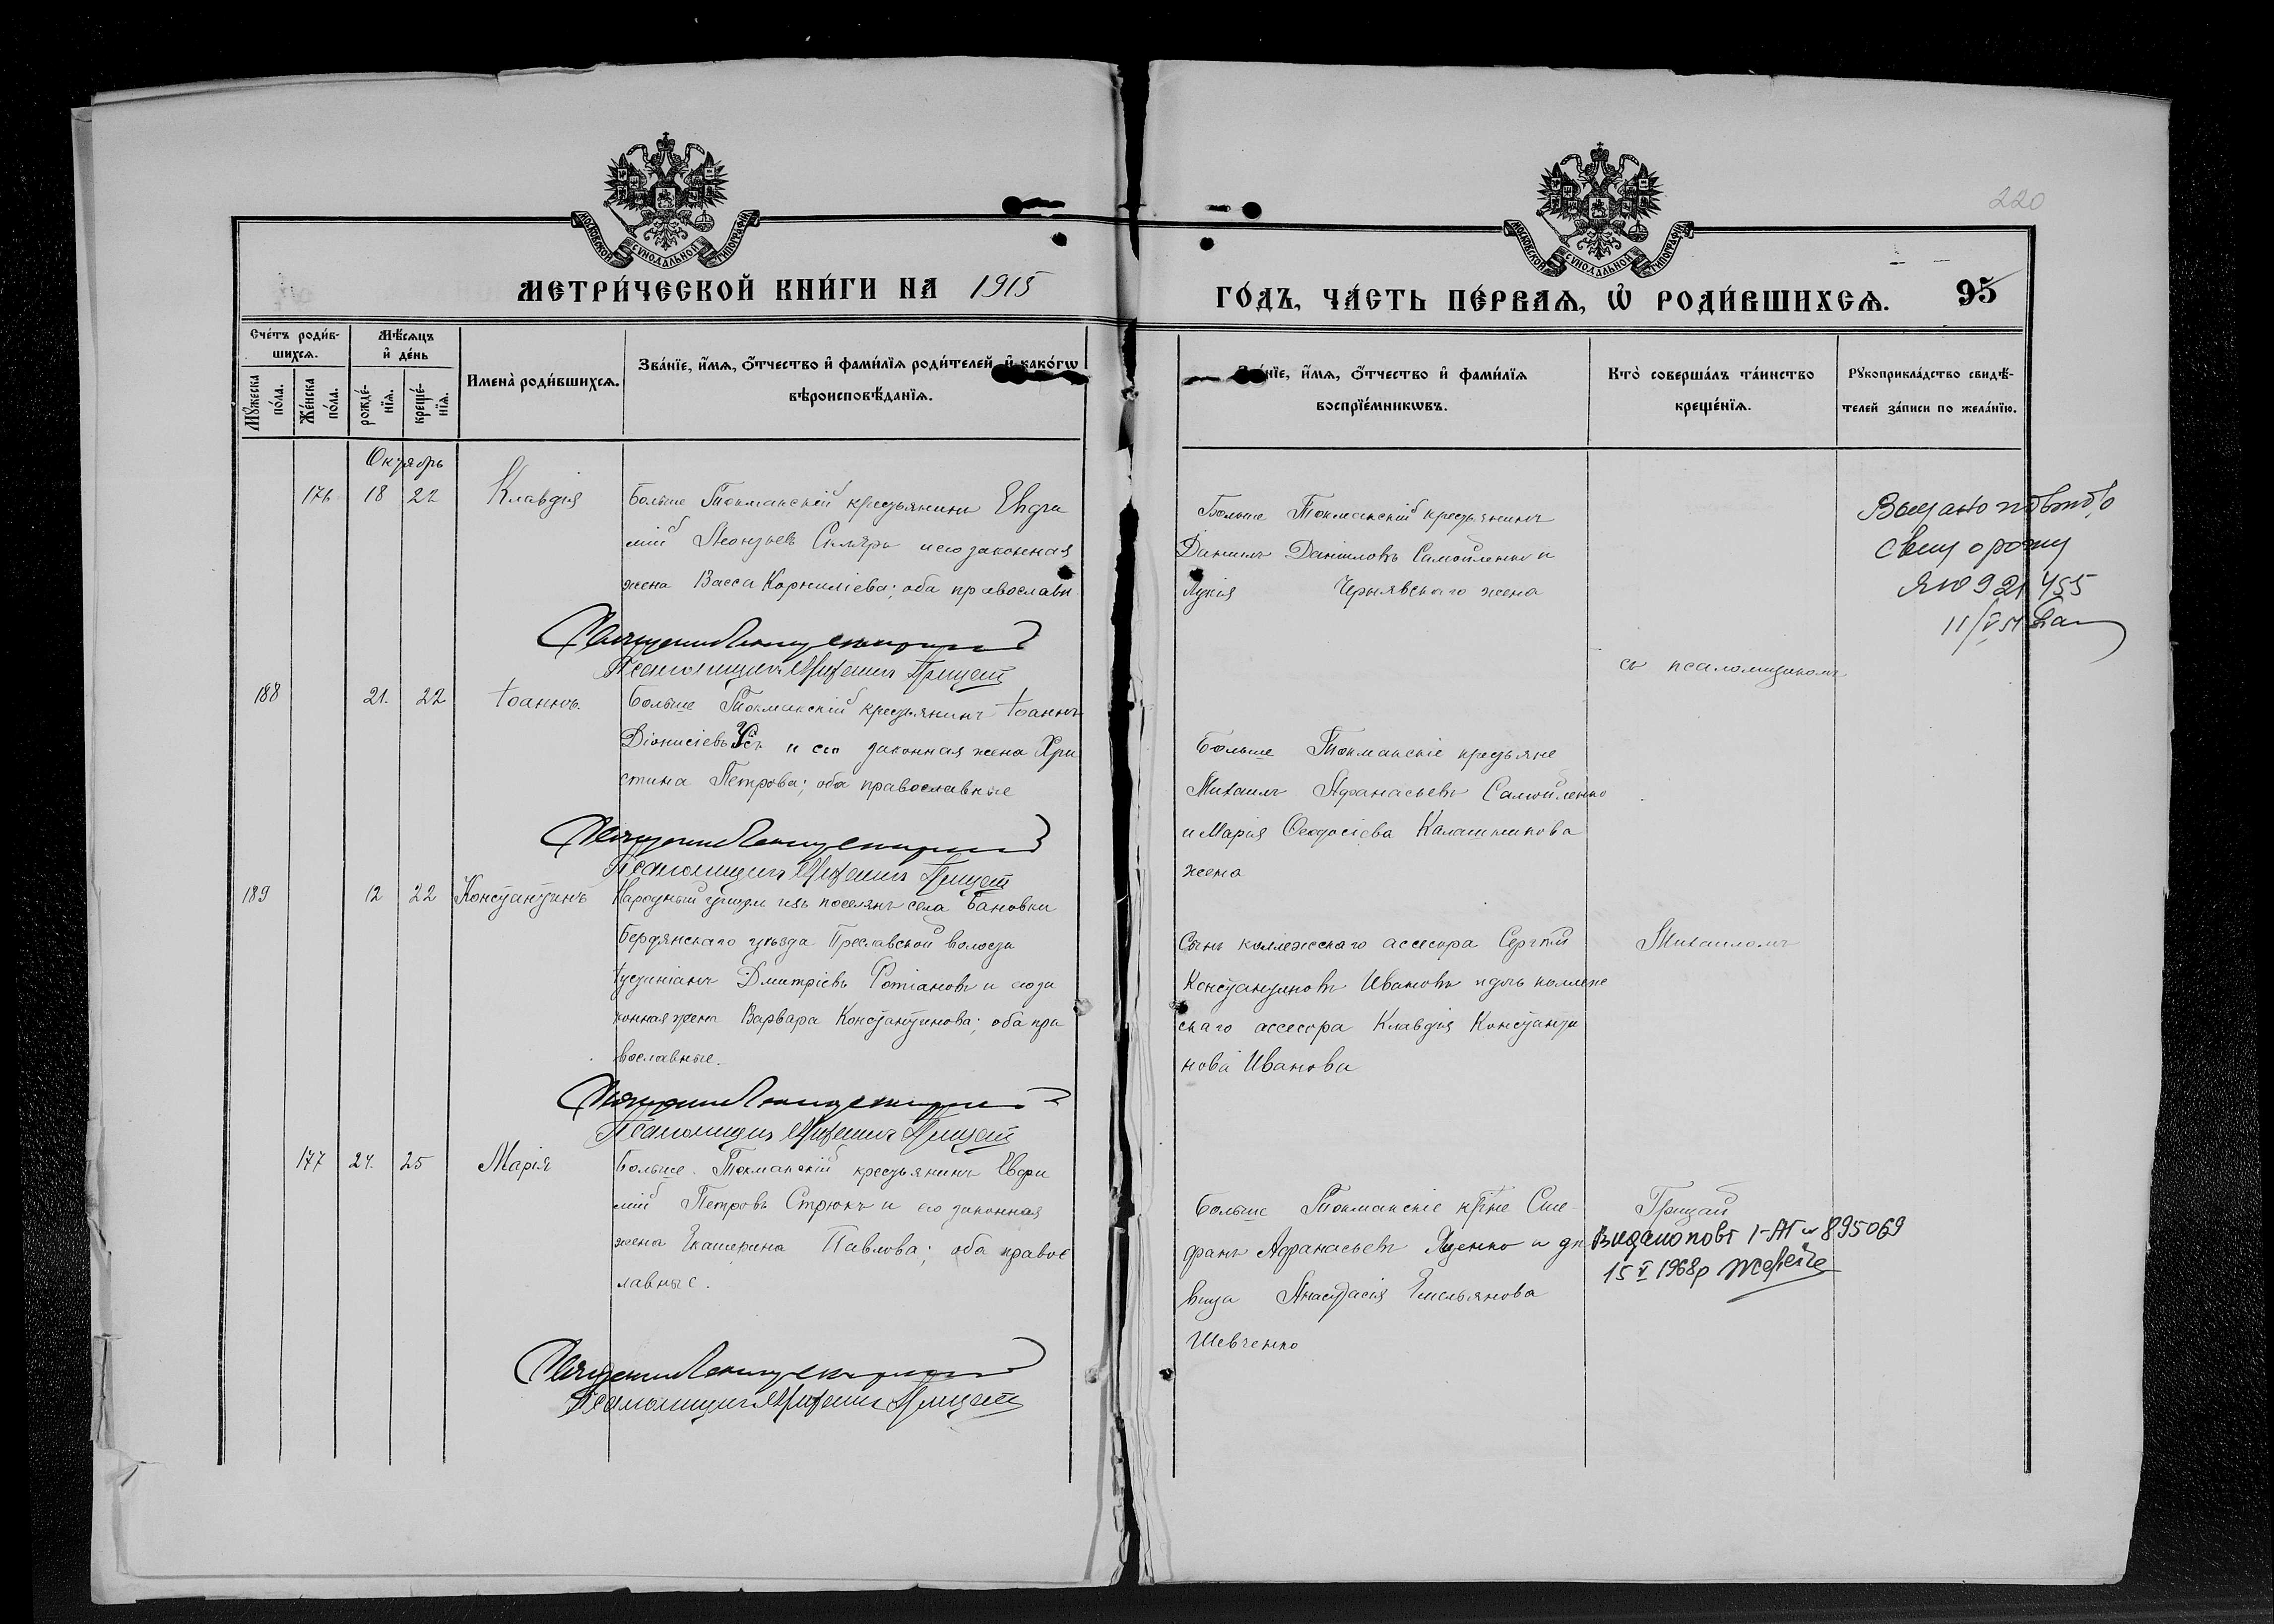 220
МОСКОВСКОЙ СѴНОДАЛЬНОЙ ТИПОГРАФІИ
МОСКОВСКОЙ СѴНОДАЛЬНОЙ ТИПОГРАФІИ
МЕТРИ́ЧЕСКОЙ КНИ́ГИ НА 1915
ГО́ДЪ, ЧА́СТЬ ПЕ́РВАѦ, Ѡ҆ РОДИ́ВШИХСѦ. 95
Сче́тъ роди́вшихсѧ.
Мꙋ́жеска по́ла.
Же́нска по́ла.
Мѣ́сѧцъ и҆ де́нь
рожде́нїѧ.
креще́нїѧ.
Имена̀ роди́вшихсѧ.
Зва́нїе, и҆́мѧ, ѻ҆́тчество и҆ фами́лїѧ роди́телей, и҆ како́гѡ
вѣроисповѣ́данїѧ.
Зва́нїе, и҆́мѧ, ѻ҆́тчество и҆ фами́лїѧ
воспрїе́мникѡвъ.
Кто̀ соверша́лъ та́инство
креще́нїѧ.
Рꙋкоприкла́дство свидѣ́-
телей за́писи по жела́нїю.
Октябрь
176 18 22 Клавдія
Больше Токмакскій крестьянинъ Евфи
мій Леонтьевъ Скляръ и его законная
жена Васса Корниліева; оба православн
Больше Токмакскій крестьянинъ
Даніилъ Даніиловъ Самойленко и
Лукія Чернявскаго жена
921455
11/V 51
Псаломщикъ Грицай
съ псаломщикомъ
188 21. 22 Іоаннъ.
Больше Токмакскій крестьянинъ Іоаннъ
Діонисіевъ Усъ и его законная жена Хри
стина Петрова; оба православные
Больше Токмакскіе крестьяне
Михаилъ Афанасьевъ Самойленко
и Марія Ѳеодосіева Калашникова
жена
Псаломщикъ Грицай
189 12 22 Константинъ
Народный учитель изъ поселянъ села Бановки
Бердянскаго уѣзда Преславской волости
Іустиніанъ Дмитріевъ Фотіановъ и его за
конная жена Варвара Константинова; оба пра
вославные.
Сынъ коллежскаго ассесора Сергѣй
Константиновъ Ивановъ и дочь коллеж
скаго ассесора Клавдія Константи
нова Иванова
Михаиломъ
Псаломщикъ Грицай
177 24. 25 Марія
Больше Токмакскій крестьянинъ Евфи
мій Петровъ Стрюкъ и его законная
жена Екатерина Павлова; оба правос
лавные.
Больше Токмакскіе кр-не Сте-
фанъ Афанасьевъ Яценко и дѣ
вица Анастасія Емельянова
Шевченко
Грицай
Видано повт І-АП № 895069
15 V 1968р
Псаломщикъ Грицай